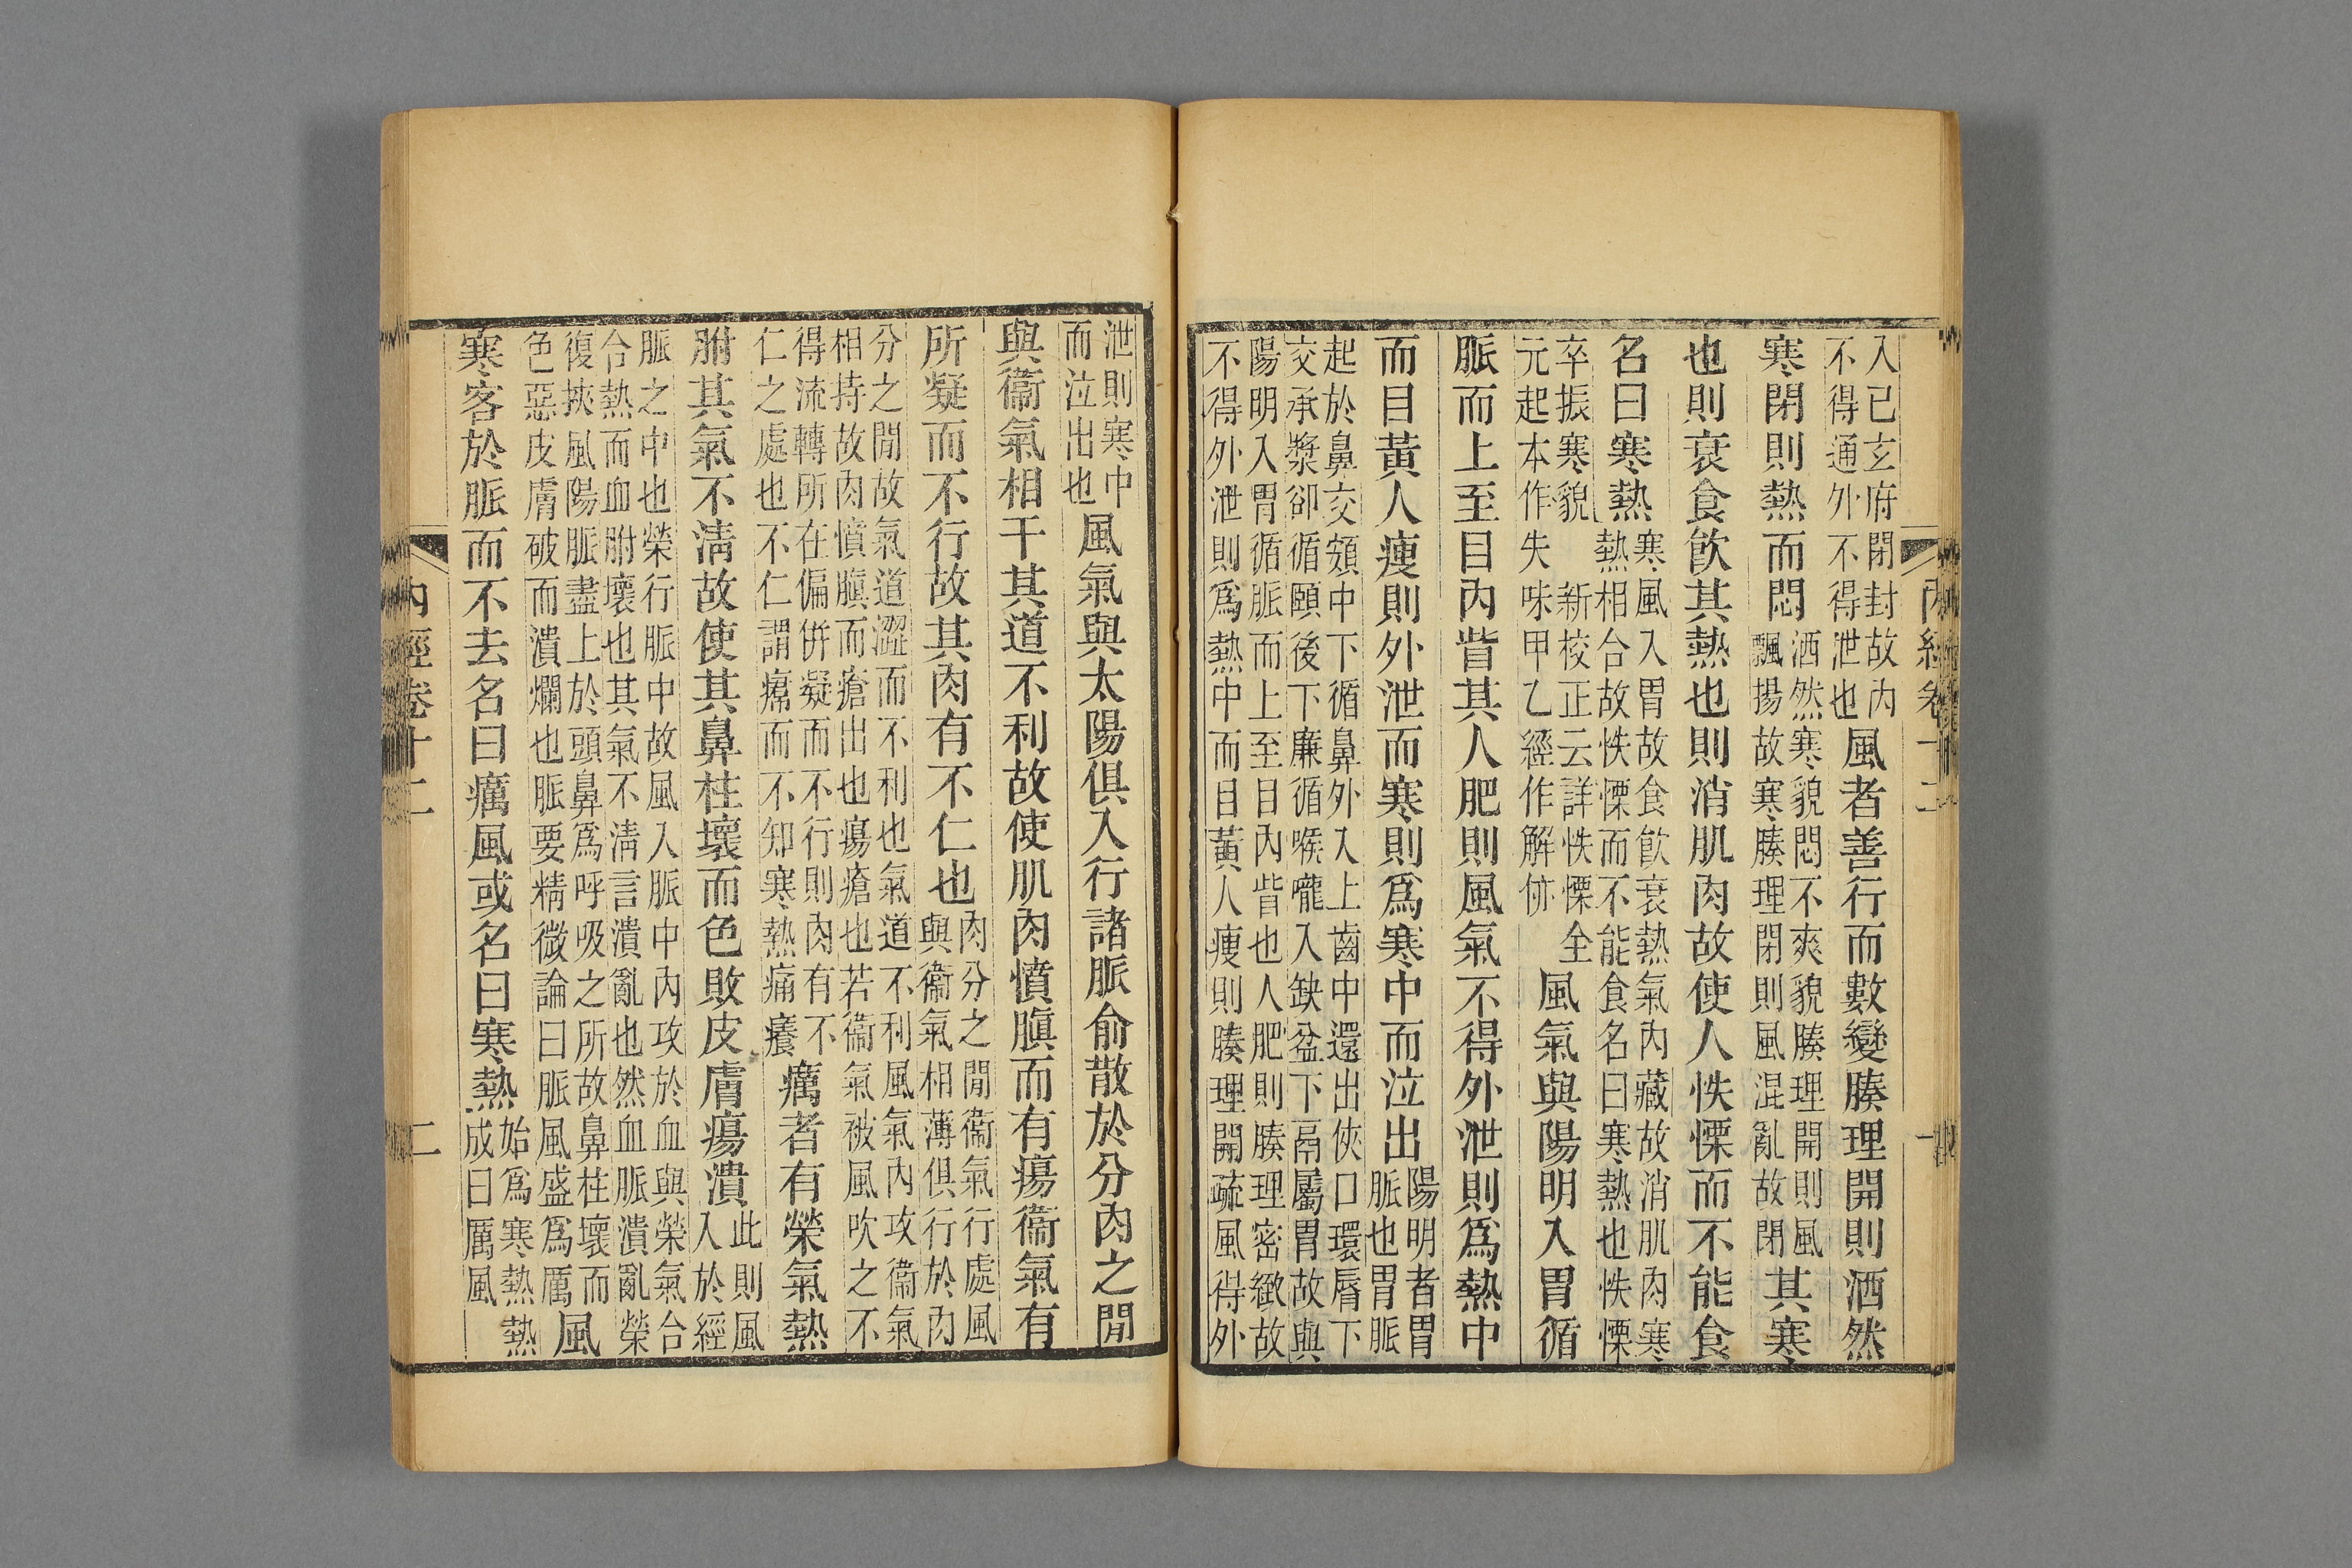 內經卷十二 一
入已玄府閉封故內
不得通外不得泄也
風者善行而數變腠理開則洒然
寒閉則熱而悶
洒然寒貌悶不爽貌腠理開則風
飄揚故寒腠理閉則風混亂故閉
其寒
也則衰食飮其熱也則消肌肉故使人怢慄而不能食
名曰寒熱
寒風入胃故食飮衰熱氣內藏故消肌肉寒
熱相合故怢慄而不能食名曰寒熱也怢慄
卒振寒貌 新校正云詳怢慄全
元起本作失味甲乙經作解㑊
風氣與陽明入胃循
脈而上至目內眥其人肥則風氣不得外泄則爲熱中
而目黃人瘦則外泄而寒則爲寒中而泣出
陽明者胃
脈也胃脈
起於鼻交頞中下循鼻外入上齒中還出俠口環脣下
交承漿卻循頤後下廉循喉嚨入缺盆下鬲屬胃故與
陽明入胃循脈而上至目內眥也人肥則腠理密緻故
不得外泄則爲熱中而目黃人瘦則腠理開疏風得外
泄則寒中
而泣出也
風氣與太陽俱入行諸脈俞散於分肉之閒
與衞氣相干其道不利故使肌肉憤䐜而有瘍衞氣有
所凝而不行故其肉有不仁也
肉分之閒衞氣行處風
與衞氣相薄俱行於肉
分之閒故氣道澀而不利也氣道不利風氣內攻衞氣
相持故肉憤䐜而瘡出也瘍瘡也若衞氣被風吹之不
得流轉所在偏併凝而不行則肉有不
仁之處也不仁謂𤸷而不知寒熱痛癢
癘者有榮氣熱
胕其氣不淸故使其鼻柱壞而色敗皮膚瘍潰
此則風
入於經
脈之中也榮行脈中故風入脈中內攻於血與榮氣合
合熱而血胕壞也其氣不淸言潰亂也然血脈潰亂榮
復挾風陽脈盡上於頭鼻爲呼吸之所故鼻柱壞而
色惡皮膚破而潰爛也脈要精微論曰脈風盛爲厲
風
寒客於脈而不去名曰癘風或名曰寒熱
始爲寒熱熱
成曰厲風
內經卷十二 二